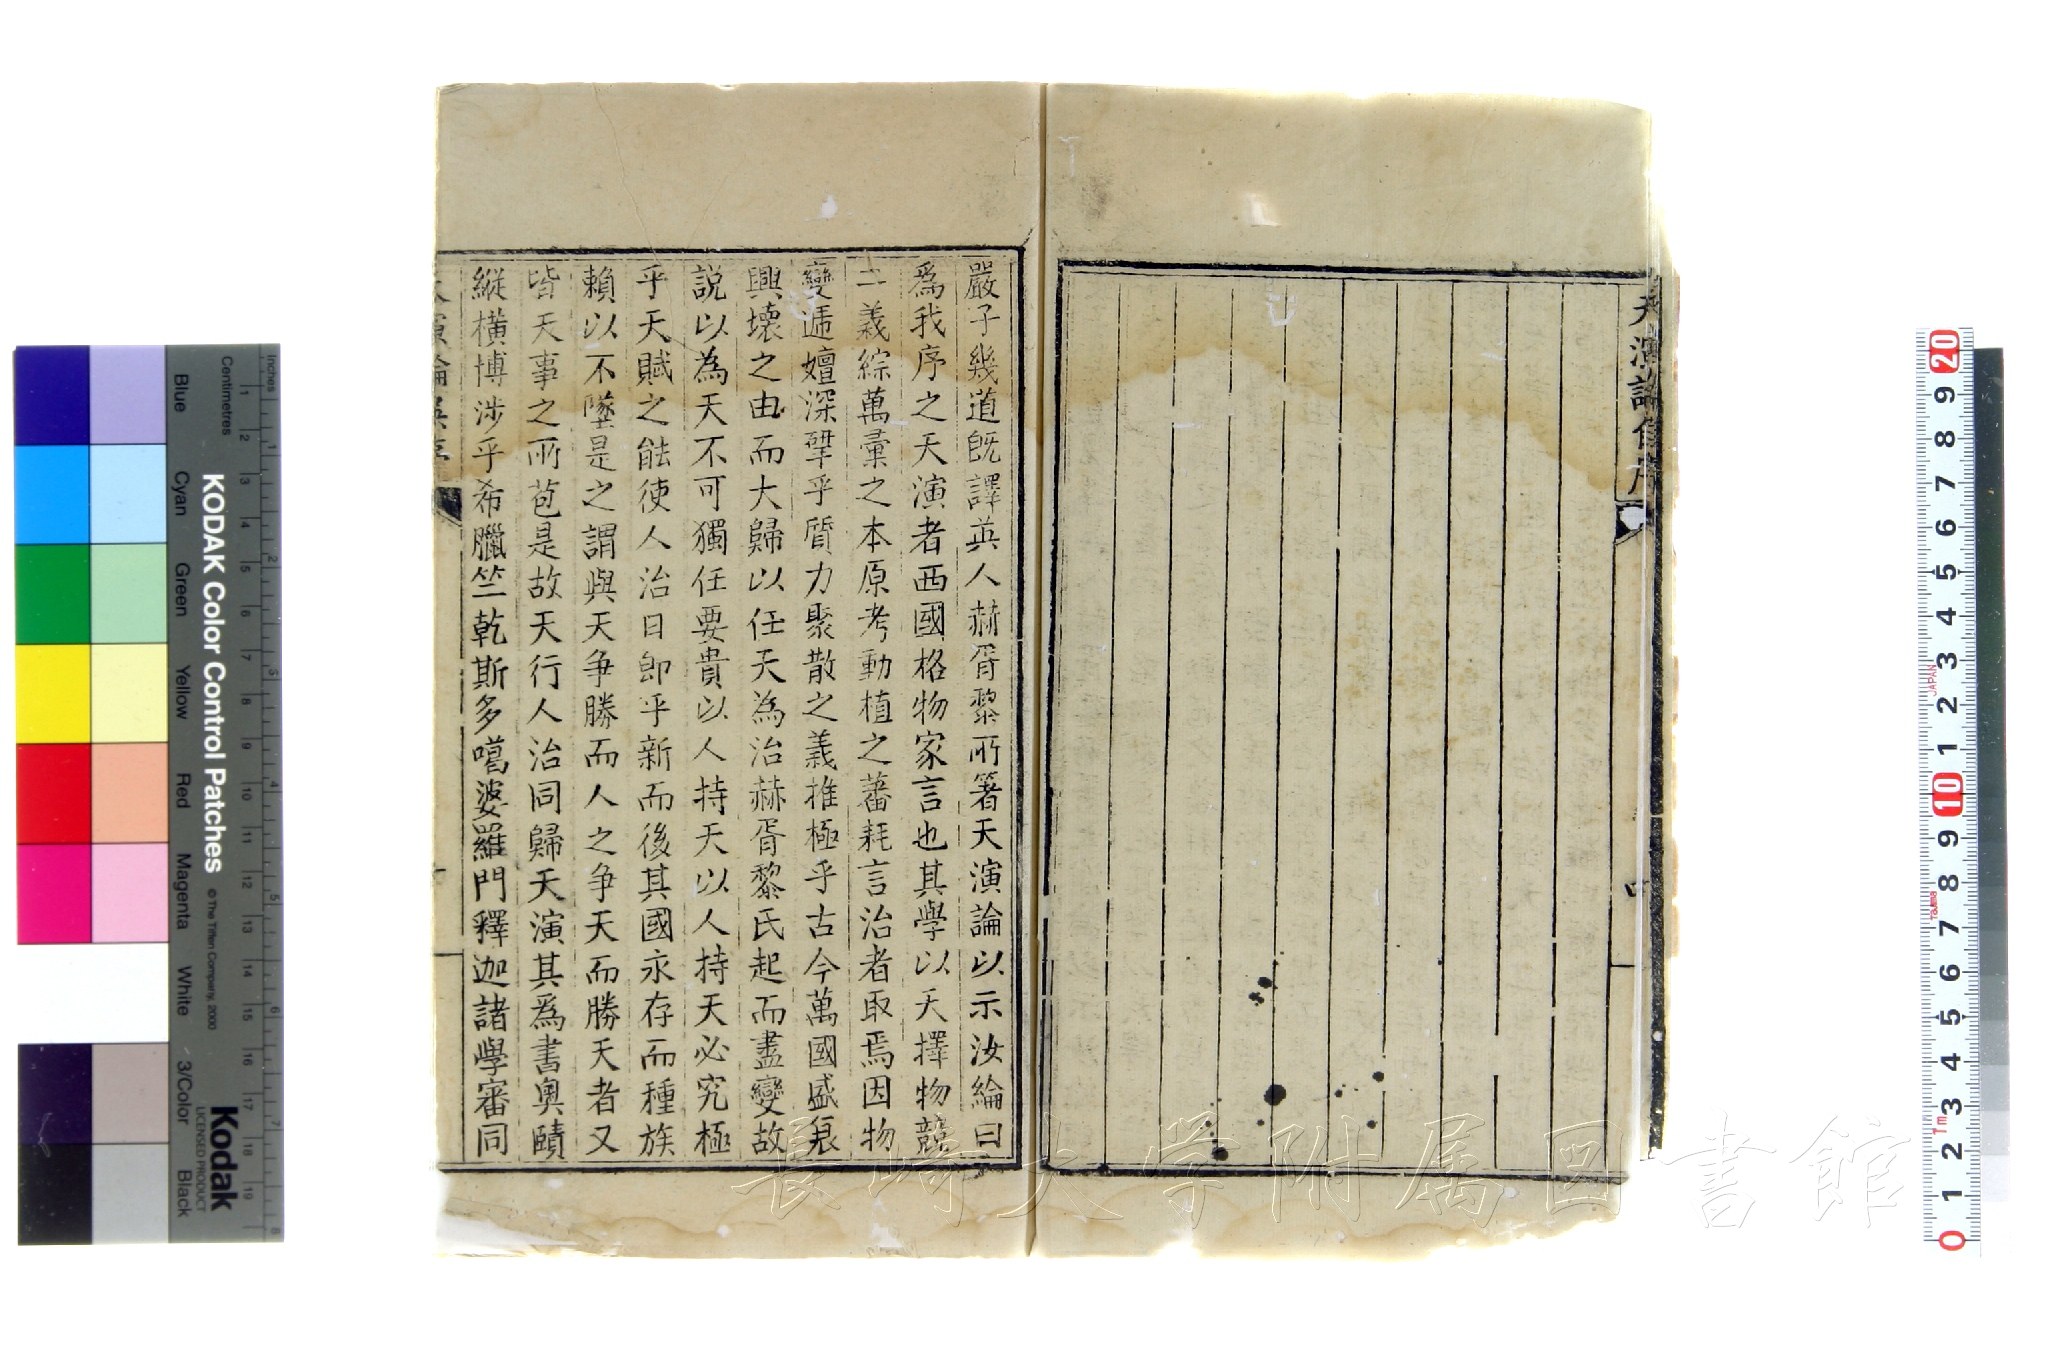 嚴子幾道既譯英人赫胥黎所箸天演論以示汝綸曰
爲我序之天演者西國格物家言也其學以天擇物競
二義綜萬彙之本原考動植之蕃耗言治者取焉因物
變遞嬗深揅乎質力聚散之義推極乎古今萬國盛衰
興壞之由而大歸以任天為治赫胥黎氏起而盡變故
説以為天不可獨任要貴以人持天以人持天必究極
乎天賦之能使人治日即乎新而後其國永存而種族
賴以不墜是之謂與天爭勝而人之爭天而勝天者又
皆天事之所苞是故天行人治同歸天演其爲書奧賾
縱橫博涉乎希臘竺乾斯多噶婆羅門釋迦諸學審同
天演論
四
長崎大学附属図書館
KODAK Color Control Patches
© The Tiffen Company, 2000
Kodak
LICENSED PRODUCT
Inches
Centimetres
Blue
Cyan
Green
Yellow
Red
Magenta
White
3/Color
Black
1 2 3 4 5 6 7 8 9 10 11 12 13 14 15 16 17 18 19
1 2 3 4 5 6 7 8
0 1 2 3 4 5 6 7 8 9 10 1 2 3 4 5 6 7 8 9 20
1m
JAPAN